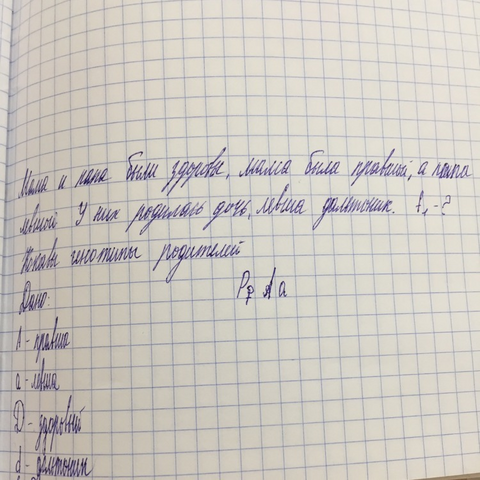 Мама и папа были здоровы, мама была правшой, а папа
левшой У них родилась дочь, левша дальтоник. F₁-?
Покажи генотипы родителей
Дано:
P♀ Aa
A - правша
a - левша
D - здоровый
d - дальтоник